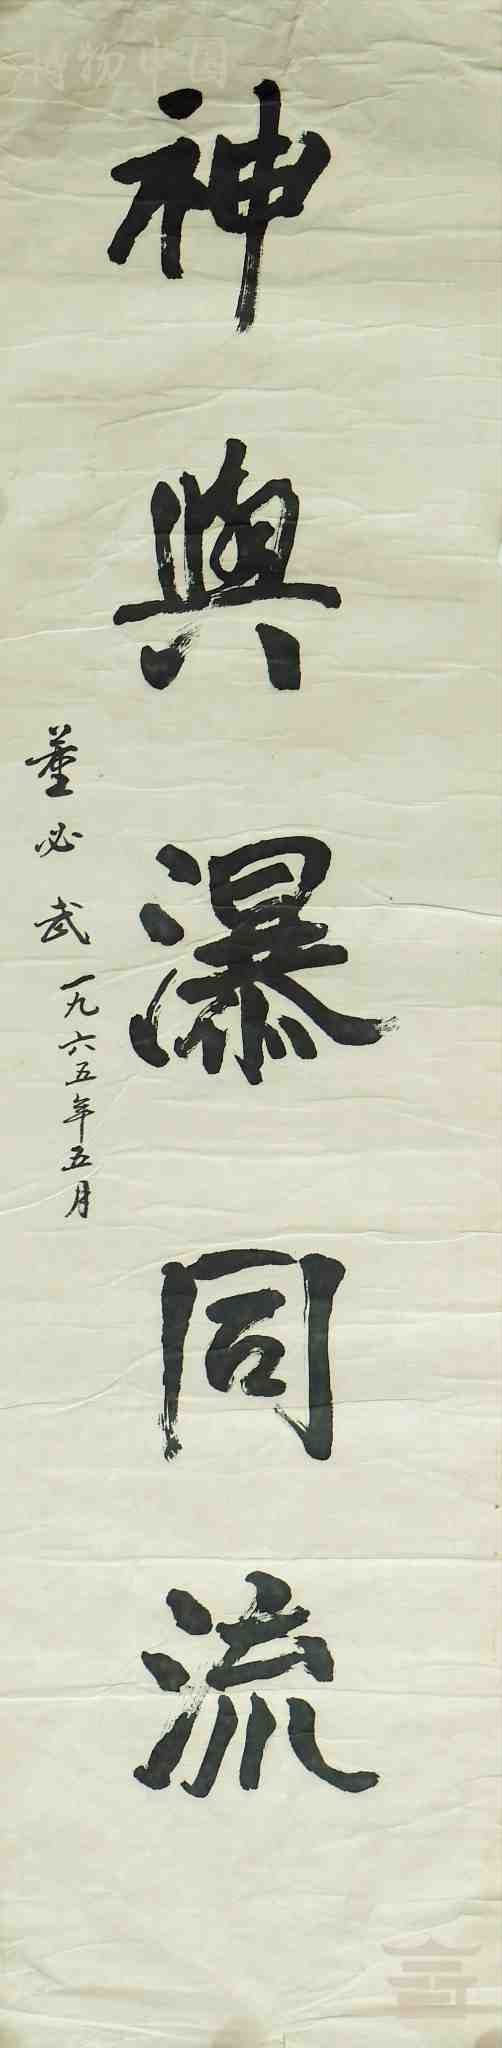 博物中国
神與瀑同流
董必武
一九六五年五月